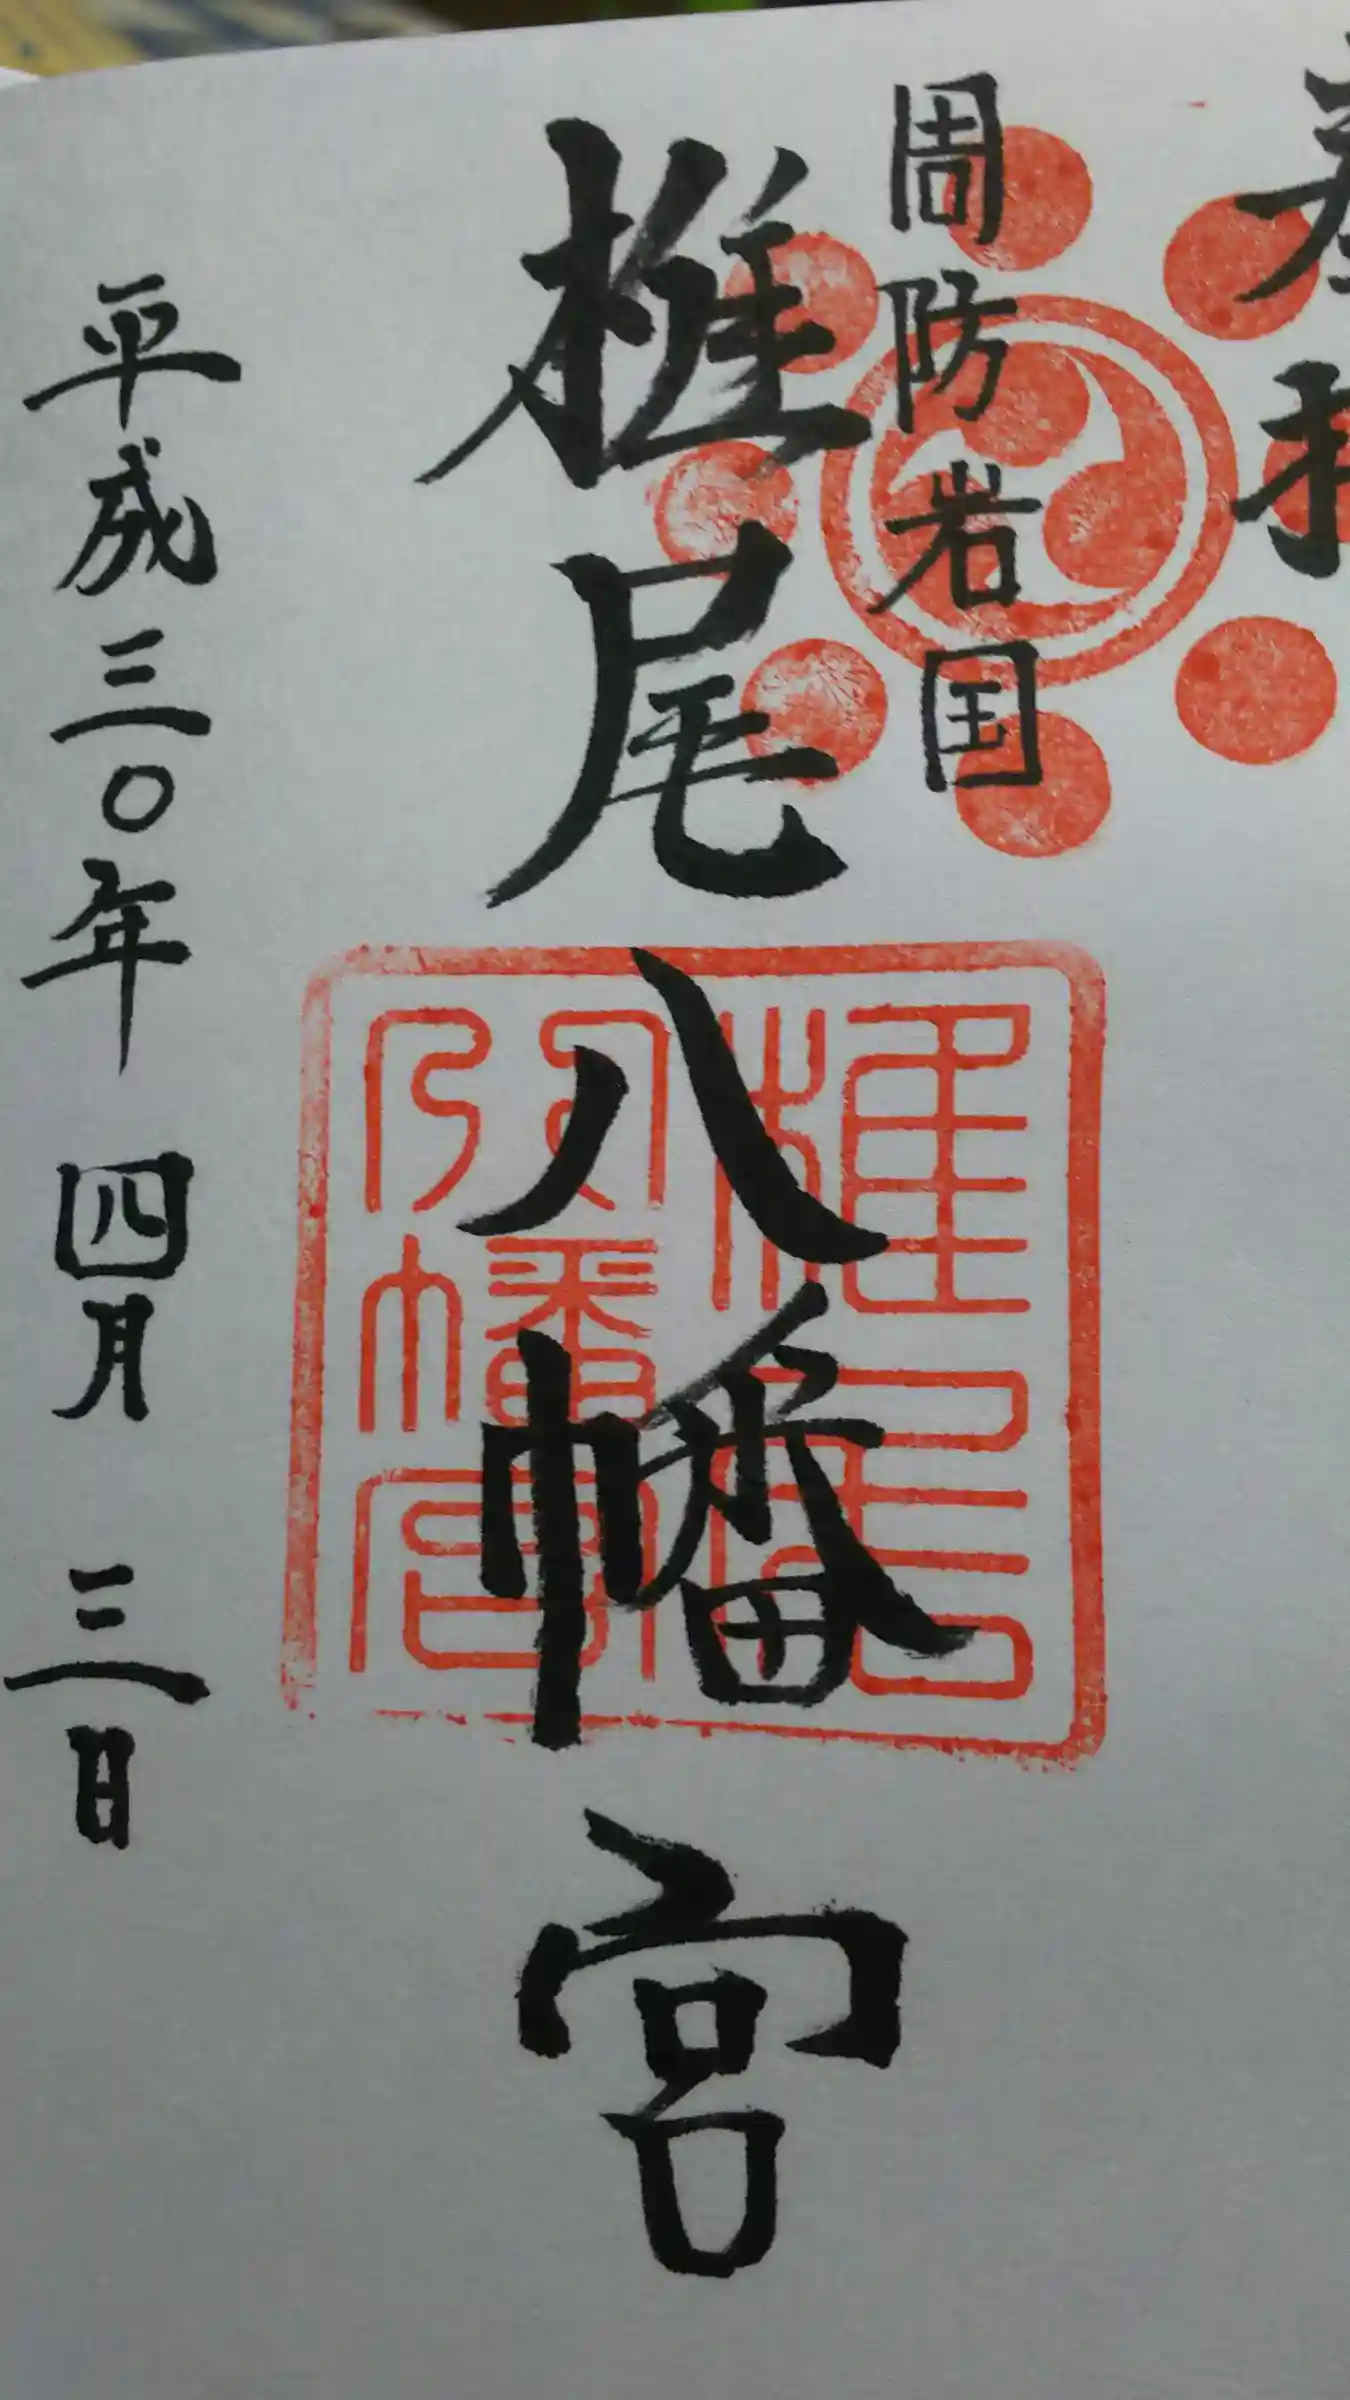 周防岩国
椎尾八幡宮
平成三〇年 四月 三日
椎尾
八幡宮